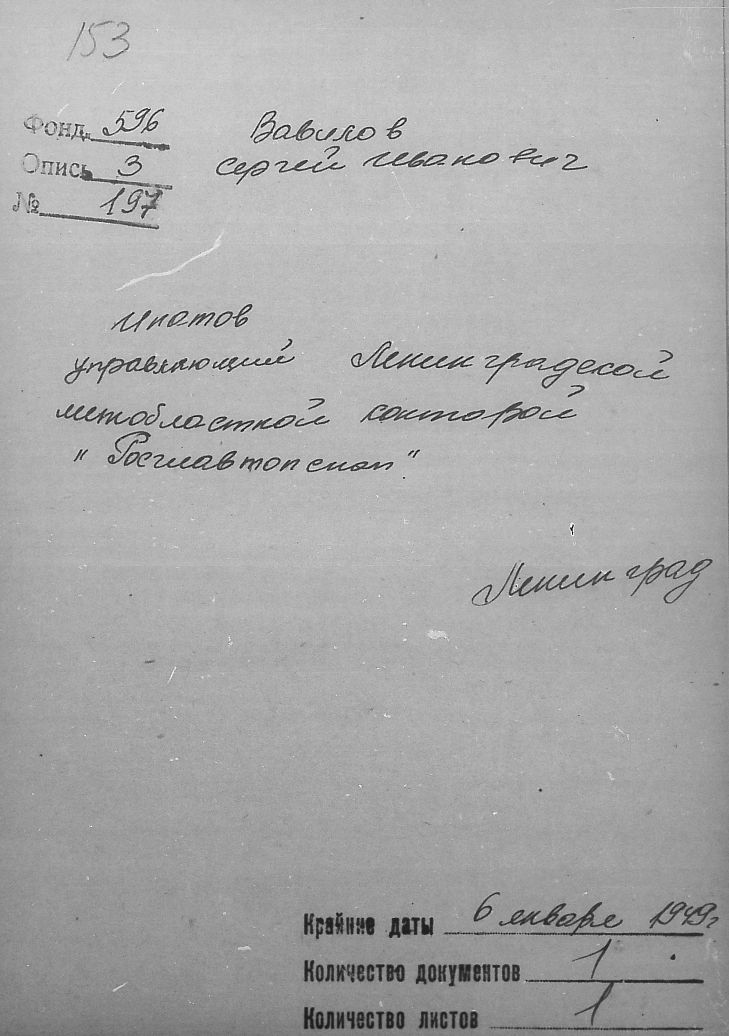 153
Фонд 596
Опись 3
№ 197
Вавилов
Сергей Иванович
Ипатов
управляющий Ленинградской
межобластной конторой
"Росглавтопснаб"
Ленинград
Крайние даты 6 января 1949г
Количество документов 1
Количество листов 1